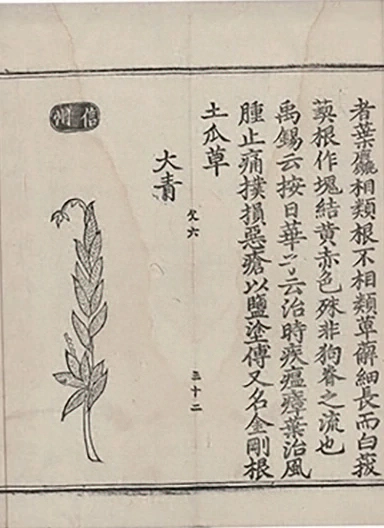 者葉麄相類根不相類萆薢細長而白菝
葜根作塊結黄赤色殊非狗脊之流也
禹錫云按日華子云治時疾瘟瘴葉治風
腫止痛撲損惡瘡以鹽塗傅又名金剛根
土瓜草
欠六
三十二
大青
信州